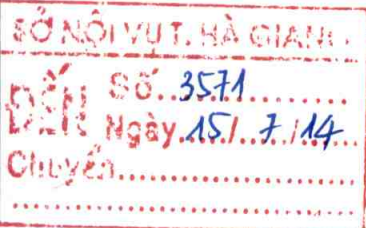 SỞ NỘI VỤ T. HÀ GIANG
ĐẾN Số. 3571
Ngày. 15/. 7 /14
Chuyển